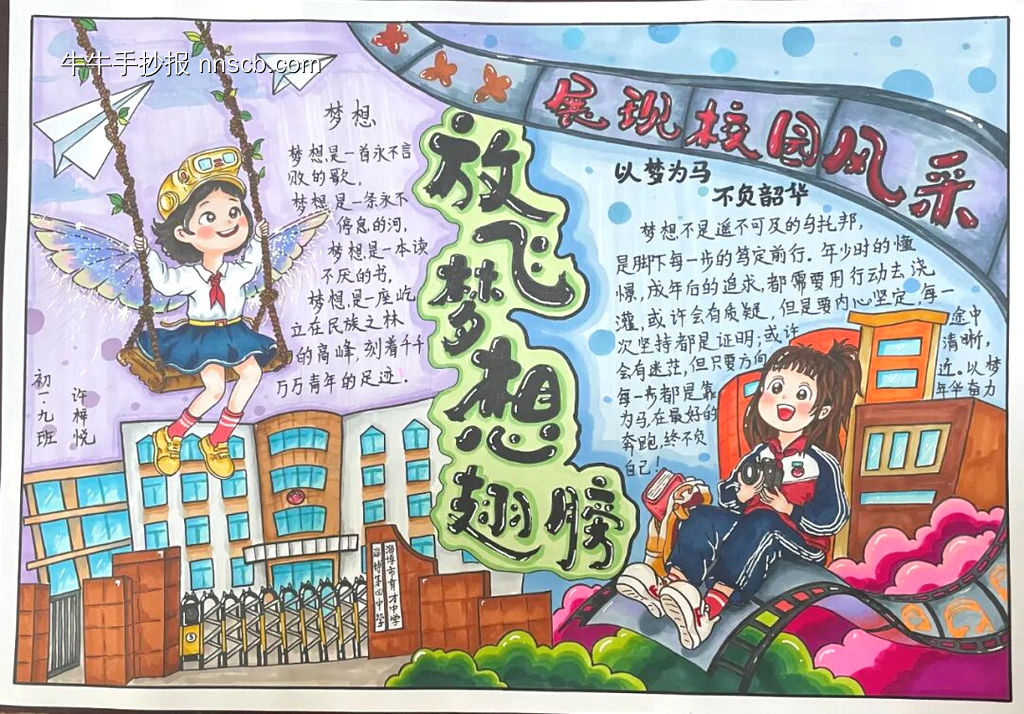 牛牛手抄报 nnscb.com
展现校园风采
放飞梦想翅膀
梦想
梦想是一首永不言
败的歌,
梦想是一条永不
停息的河,
梦想是一本读
不厌的书,
梦想,是一座屹
立在民族之林
的高峰,刻着千千
万万青年的足迹.
初一·九班
许梓悦
以梦为马
不负韶华
梦想不是遥不可及的乌托邦,
是脚下每一步的笃定前行.年少时的憧
憬,成年后的追求,都需要用行动去浇
灌,或许会有质疑,但是要内心坚定,每一
次坚持都是证明;或许 途中
会有迷茫,但只要方向 清晰,
每一步都是靠 近。以梦
为马,在最好的 年华奋力
奔跑,终不负
自己!
淄博市育才中学
淄博第四中学